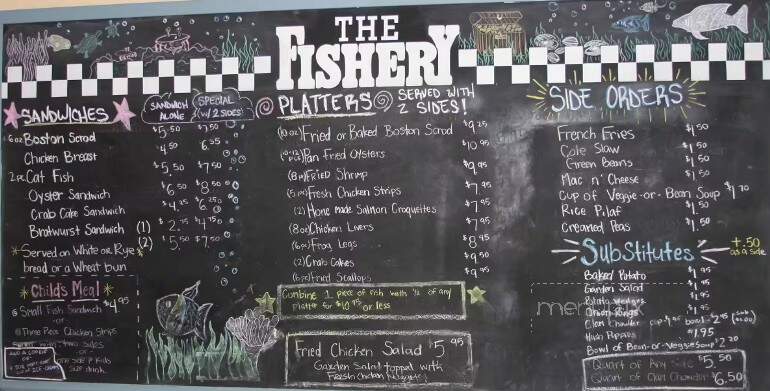 THE
FISHERY
SANDWICHES
SANDWICH ALONE
SPECIAL (w/ 2 SIDES)
6 oz Boston Scrod $5.50 $7.50
Chicken Breast $4.50 6.55
2 pc. Cat Fish $5.50 $7.50
Oyster Sandwich $6.50 $8.50
Crab Cake Sandwich $4.25 $6.25
Bratwurst Sandwich (1) $2.75 $4.75
(2) $5.50 $7.50
*Served on White or Rye
bread or a Wheat bun
Child's Meal
Small Fish Sandwich $4.95
-or-
Three Piece Chicken Strips
two sides
PLATTERS SERVED WITH 2 SIDES!
(10 oz) Fried or Baked Boston Scrod $9.25
Pan Fried Oysters $10.95
(8 pc) Fried Shrimp $9.95
(5 pc) Fresh Chicken Strips $7.95
(2) Home made Salmon Croquettes $7.95
(8 oz) Chicken Livers $7.95
(6 pc) Frog Legs $8.95
(2) Crab Cakes $9.50
(6 pc) Fried Scallops $9.95
Combine 1 piece of fish with 1/2 of any
platter for $10.95 or less
Fried Chicken Salad $5.95
Garden Salad topped with
Fresh Chicken
SIDE ORDERS
French Fries $1.50
Cole Slaw $1.50
Green Beans $1.50
Mac n' Cheese $1.50
Cup of Veggie-or-Bean Soup $1.70
Rice Pilaf $1.50
Creamed Peas $1.50
Substitutes +.50 as a side
Baked Potato $1.95
Garden Salad $1.95
Potato Wedges $1.95
Onion Rings $1.95
Clam Chowder cup bowl $2.95
Hush Puppies $1.95
Bowl of Bean-or-Veggie Soup $2.20
Quart of Any Side $5.50
Quart of Clam Chowder $6.50